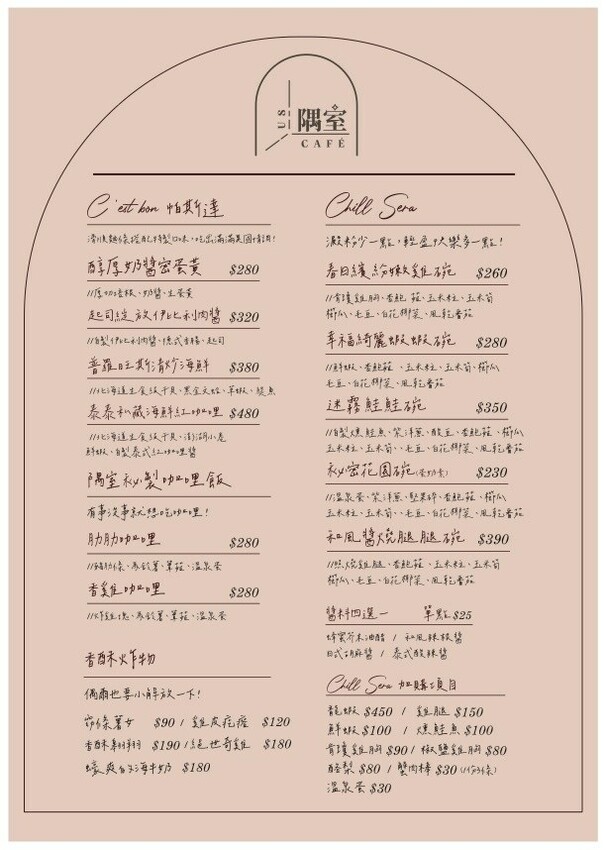 US
隅室
CAFÉ
C'est bon 帕斯達
醇厚奶醬密蛋黃 $280
//厚切培根、奶醬、生蛋黃
起司綻放伊比利肉醬 $320
//自製伊比利肉醬、德式香腸、起司
普羅旺斯清炒海鮮 $380
//北海道生食級干貝、黑金文蛤、草蝦、透魚
泰泰私藏海鮮紅咖哩 $480
//北海道生食級干貝、澎湖小卷
鮮蝦、自製泰式紅咖哩醬
隅室秘製咖哩飯
有事沒事就想吃咖哩!
肋肋咖哩 $280
//豬肋條、馬鈴薯、草菇、溫泉蛋
香雞咖哩 $280
//炸雞塊、馬鈴薯、草菇、溫泉蛋
香酥炸物
偶爾也要小解放一下!
窈條薯女 $90 / 雞皮疙瘩 $120
香酥翱翔 $190 / 絕世奇雞 $180
蠔爽的海牛奶 $180
Chill Sera
澱粉少一點,輕盈快樂多一點!
春日繽紛嫩雞碗 $260
//青瓊雞胸、杏鮑菇、玉米粒、玉米筍
櫛瓜、毛豆、白花椰菜、風乾番茄
幸福綺麗蝦蝦碗 $280
//鮮蝦、杏鮑菇、玉米粒、玉米筍、櫛瓜
毛豆、白花椰菜、風乾番茄
迷霧鮭鮭碗 $350
//自製燻鮭魚、紫洋蔥、酸豆、杏鮑菇、櫛瓜
玉米粒、玉米筍、毛豆、白花椰菜、風乾番茄
秘密花園碗(蛋奶素) $230
//溫泉蛋、紫洋蔥、堅果碎、杏鮑菇、櫛瓜
玉米粒、玉米筍、毛豆、白花椰菜、風乾番茄
和風醬燒腿腿碗 $390
//照燒雞腿、杏鮑菇、玉米粒、玉米筍
櫛瓜、毛豆、白花椰菜、風乾番茄
醬料四選一 單點$25
蜂蜜芥末油醋 / 和風辣椒醬
日式胡麻醬 / 泰式酸辣醬
Chill Sera 加購項目
龍蝦 $450 / 雞腿 $150
鮮蝦 $100 / 燻鮭魚 $100
青瓊雞胸 $90 / 椒鹽雞胸 $80
酪梨 $80 / 蟹肉棒 $30
溫泉蛋 $30